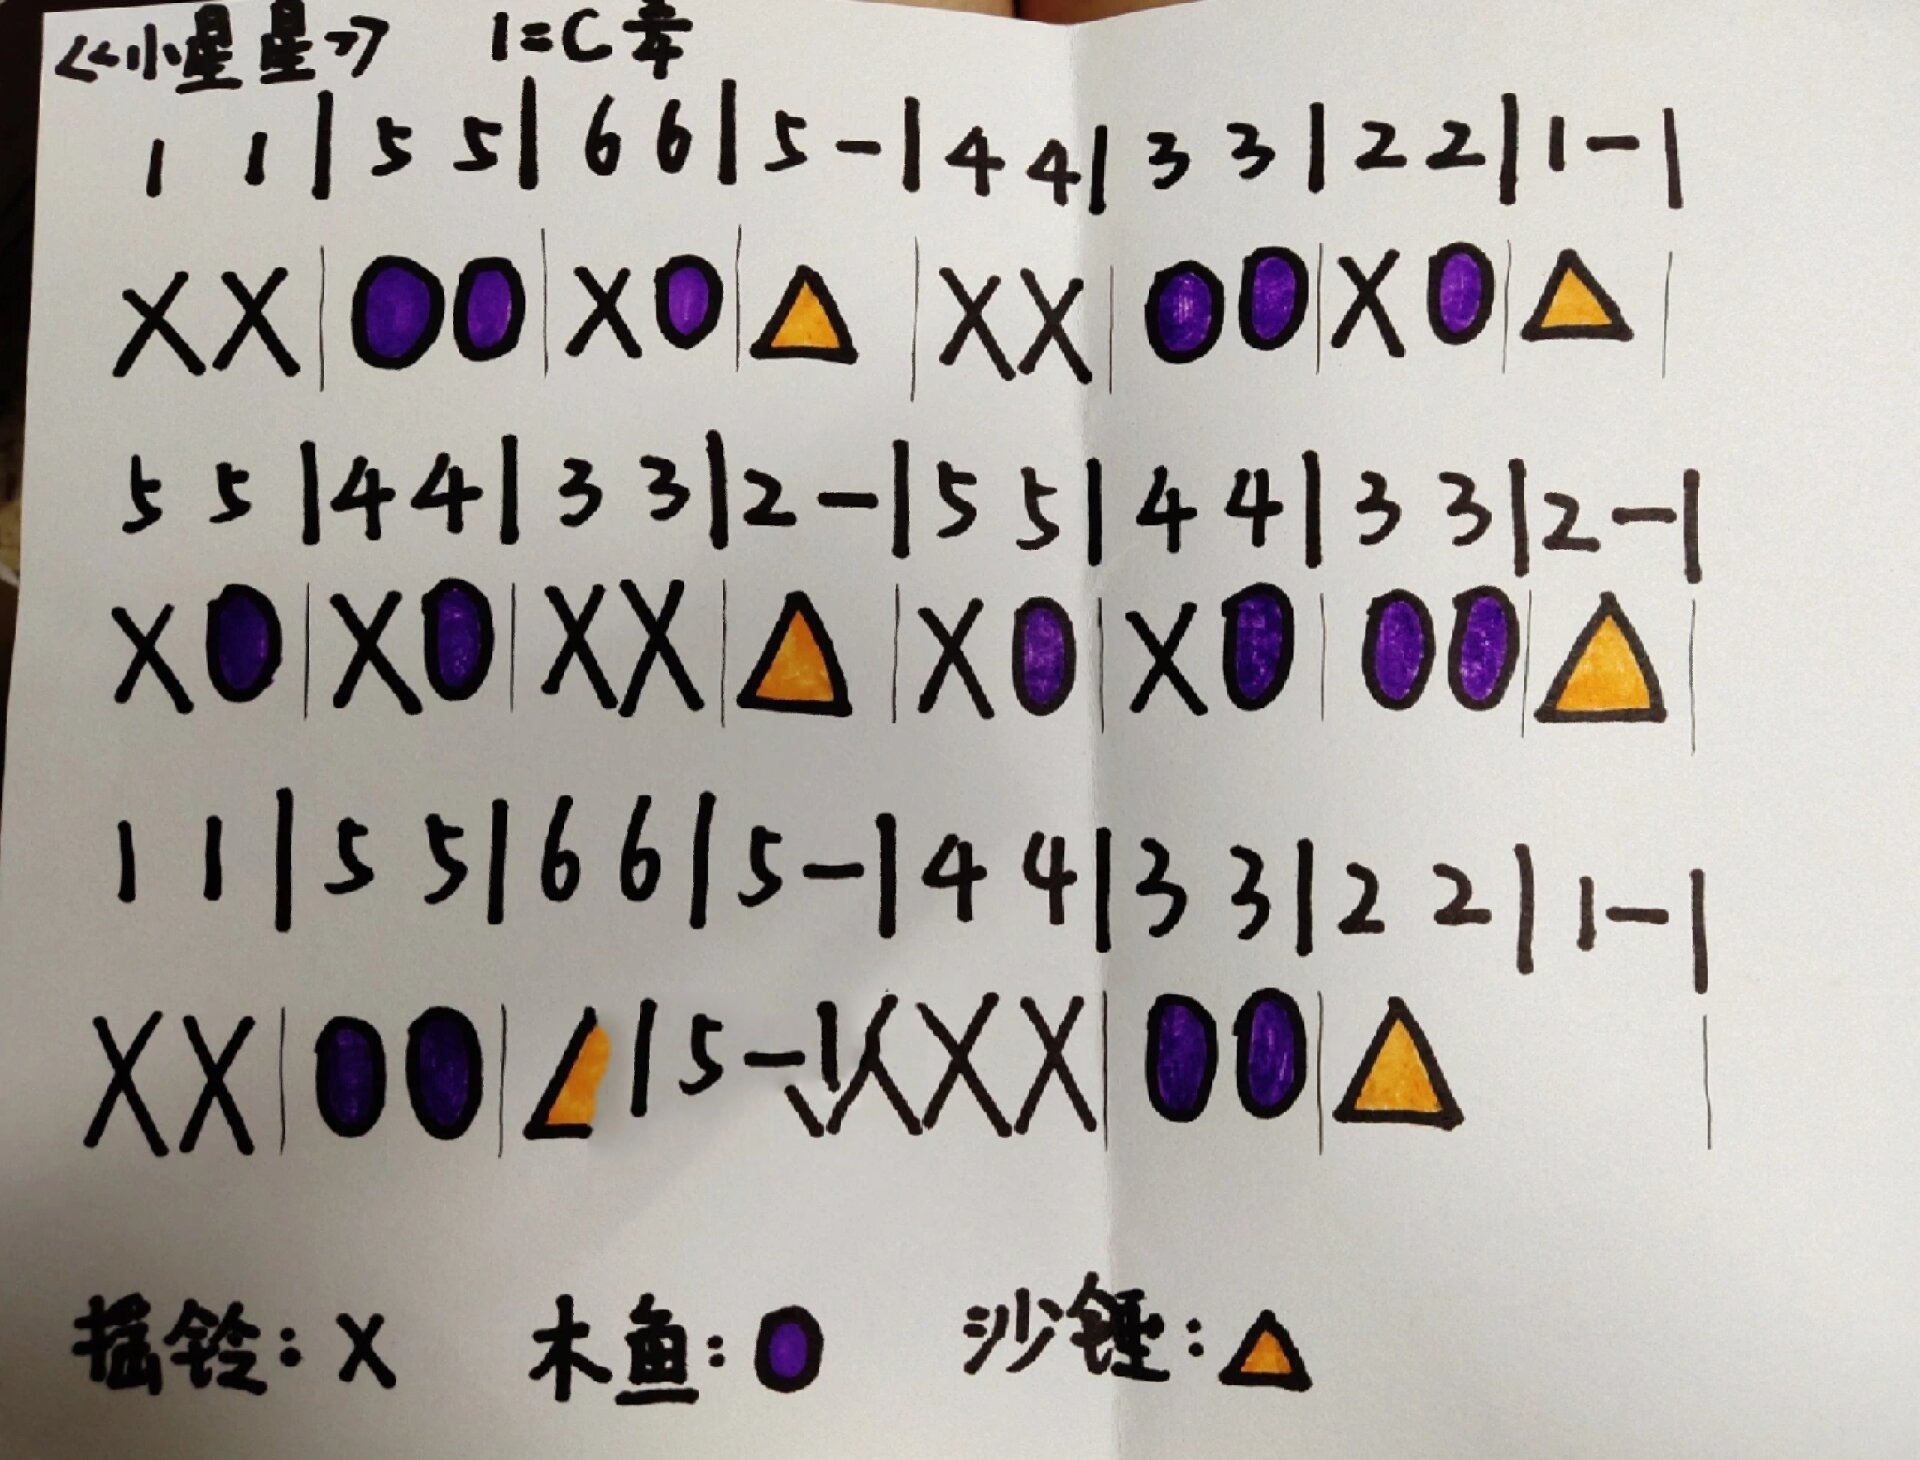 《小星星》 1=C 2/4
1 1 | 5 5 | 6 6 | 5 - | 4 4 | 3 3 | 2 2 | 1 - |
X X | O O | X O | △ | X X | O O | X O | △ |
5 5 | 4 4 | 3 3 | 2 - | 5 5 | 4 4 | 3 3 | 2 - |
X O | X O | X X | △ | X O | X O | O O | △ |
1 1 | 5 5 | 6 6 | 5 - | 4 4 | 3 3 | 2 2 | 1 - |
X X | O O | △ | 5 - | X X X | O O | △ |
摇铃：X 木鱼：O 沙锤：△